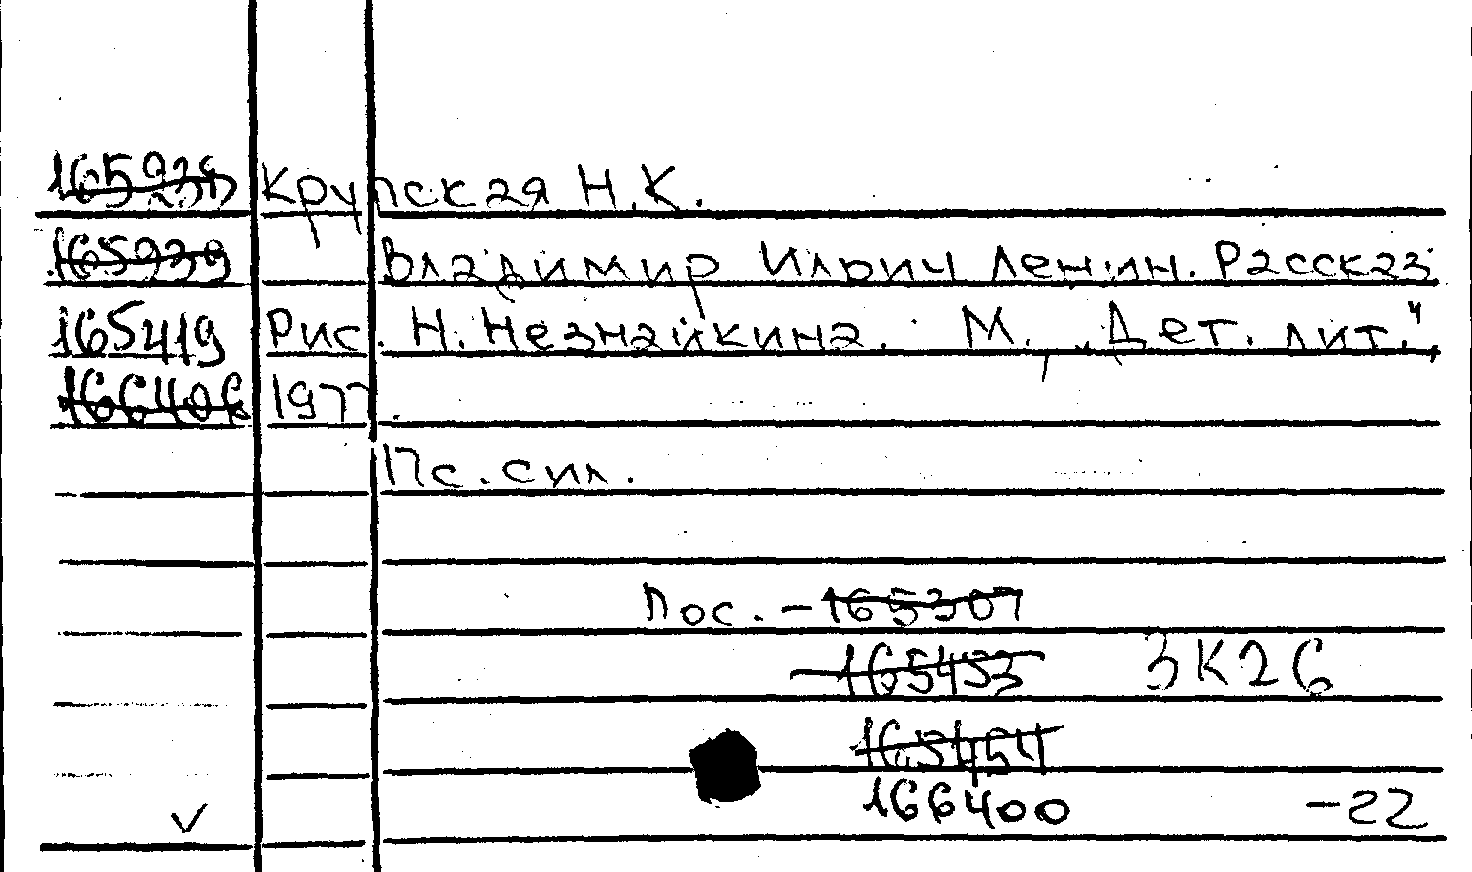 165939 Крупская Н.К.
165939 Владимир Ильич Ленин. Рассказ
165419 Рис. Н. Незнайкина. М., „Дет. лит.",
166406 1977.
Пс. сил.
Пос. - 165307
- 165453 3К26
165454
166400 -22